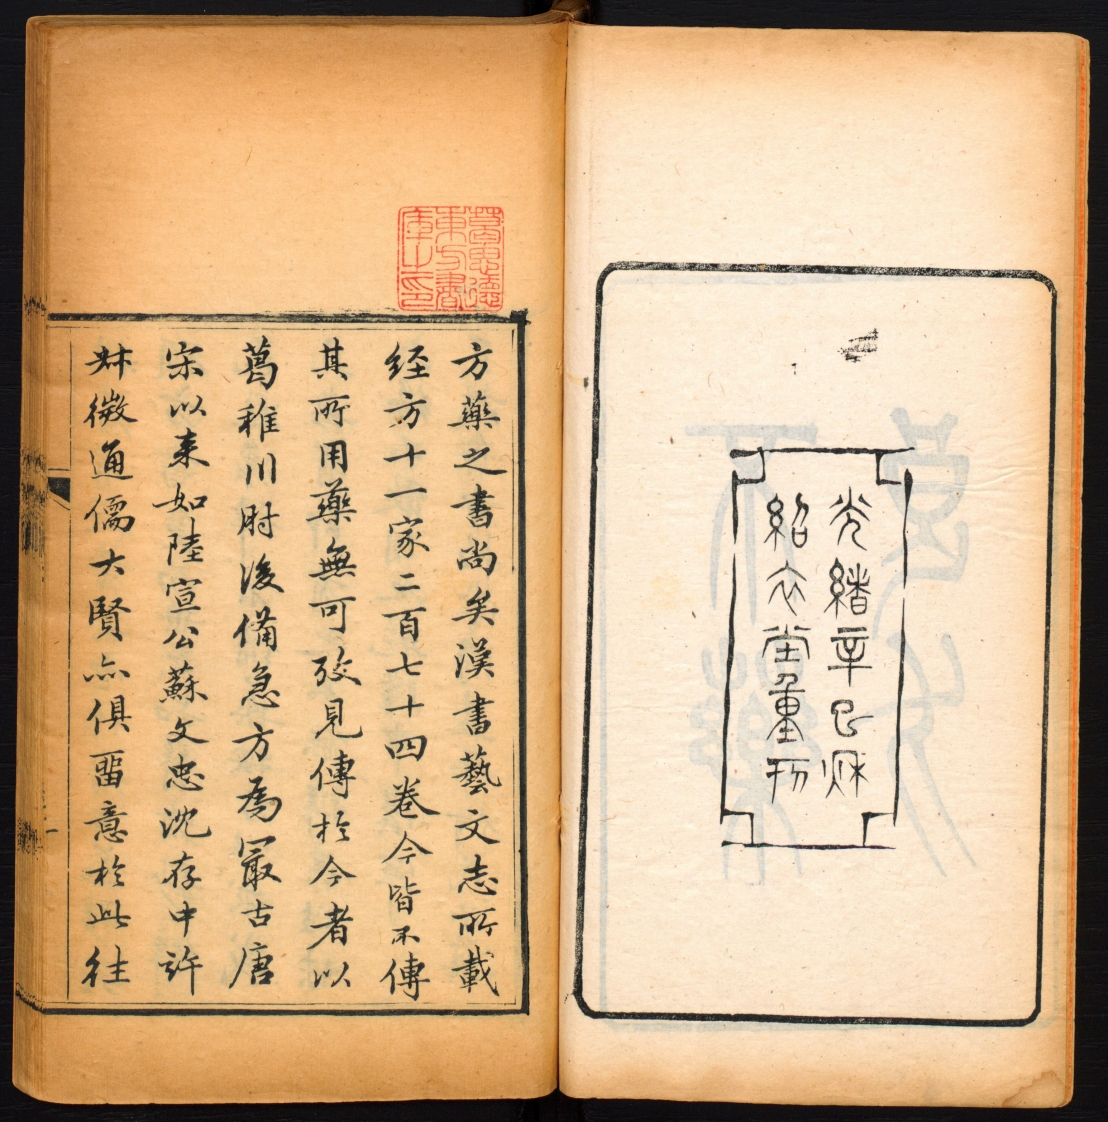 光緒辛巳秌
紹衣堂重刊
葛思德
東方書
庫之印
方藥之書尚矣漢書藝文志所載
経方十一家二百七十四卷今皆不傳
其所用藥無可攷見傳扵今者以
葛稚川肘後備急方為冣古唐
宋以来如陸宣公蘇文忠沈存中許
叔微通儒大賢亦俱畱意扵此往